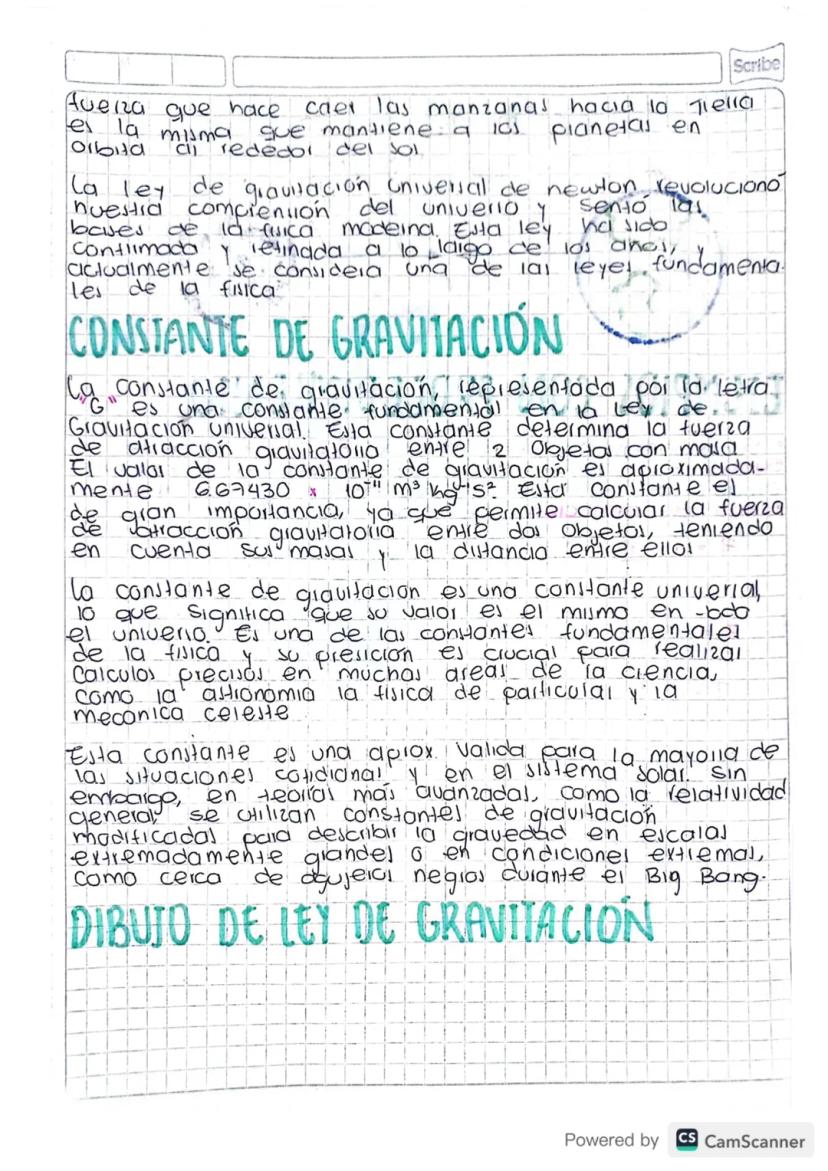 Scribe
fuerza que hace caer las manzanas hacia la Tierra
es la misma que mantiene a los planetas en
orbita al rededor del sol
La ley de gravitación universal de newton revolucionó
nuestra comprensión del universo y sentó las
bases de la física moderna. Esta ley ha sido
confirmada y refinada a lo largo de los años, y
actualmente se considera una de las leyes fundamenta-
les de la física
CONSTANTE DE GRAVITACIÓN
La constante de gravitación, representada por la letra
"G" es una constante fundamental en la Ley de
Gravitación universal. Esta constante determina la fuerza
de atracción gravitatoria entre 2 objetos con masa
El valor de la constante de gravitación es aproximada-
mente 6.67430 x 10⁻¹¹ m³ kg⁻¹ s⁻². Esta constante es
de gran importancia, ya que permite calcular la fuerza
de atracción gravitatoria entre dos objetos, teniendo
en cuenta sus masas y la distancia entre ellos
La constante de gravitación es una constante universal,
lo que significa que su valor es el mismo en todo
el universo. Es una de las constantes fundamentales
de la física y su presición es crucial para realizar
Calculos precisos en muchas areas de la ciencia,
como la astronomía la física de particulas y la
mecánica celeste
Esta constante es una aprox. Valida para la mayoría de
las situaciones cotidianas y en el sistema solar. Sin
embargo, en teorías más avanzadas, como la relatividad
general, se utilizan constantes de gravitación
modificadas para describir la gravedad en escalas
extremadamente grandes o en condiciones extremas,
como cerca de agujeros negros durante el Big Bang.
DIBUJO DE LEY DE GRAVITACIÓN
Powered by CS CamScanner